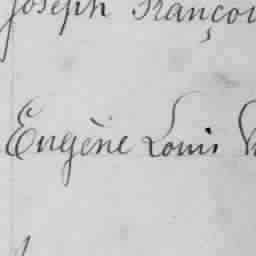 Joseph Françoi
Eugène Louis